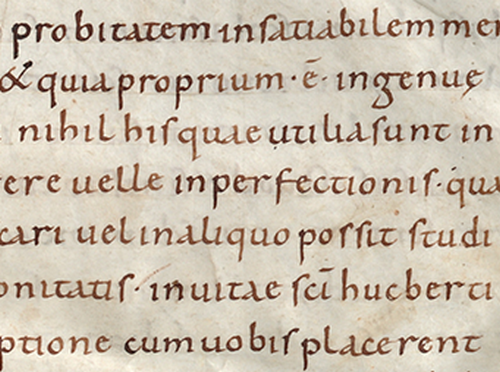 probitatem insatiabilem mer
& quia proprium · ē · ingenuę
nihil his quae utilia sunt in
ere uelle inperfectionis · qua
cari uel in aliquo possit studi
onitatis · in uitae sc̄i hucberti
ptione cum uobis placerent